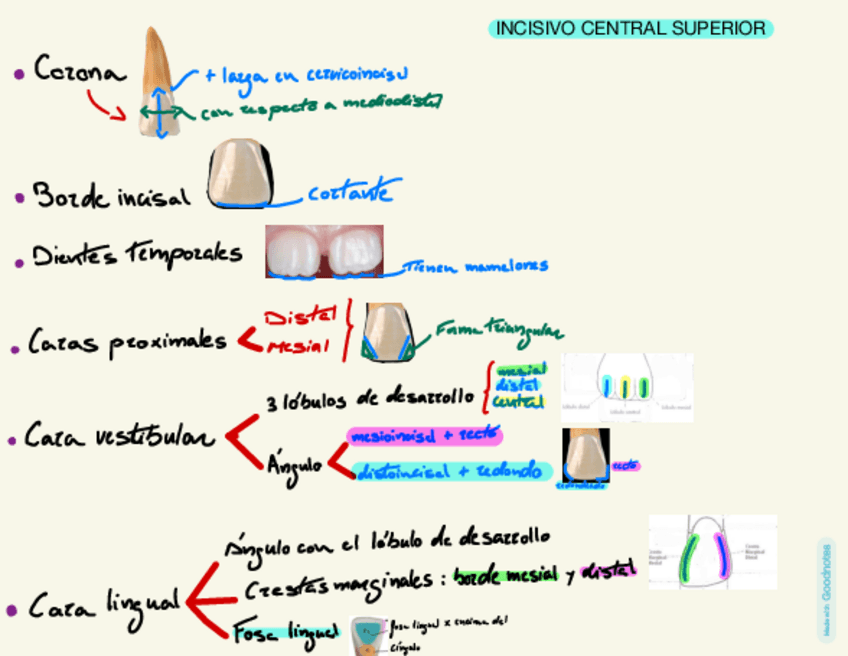 INCISIVO CENTRAL SUPERIOR
• Corona
+ larga en cervicoincisal
con respecto a mediodistal
• Borde incisal
cortante
• Dientes Temporales
Tienen mamelones
• Caras proximales
Distal
Mesial
Forma triangular
• Cara vestibular
3 lóbulos de desarrollo
mesial
distal
central
lóbulo distal
lóbulo central
lóbulo mesial
Ángulo
mesioincisal + recto
distoincisal + redondo
recto
• Cara lingual
Ángulo con el lóbulo de desarrollo
Crestas marginales : borde mesial y distal
Cresta Marginal Distal
Fosa lingual
fosa lingual x encima del
cíngulo
Made with Goodnotes